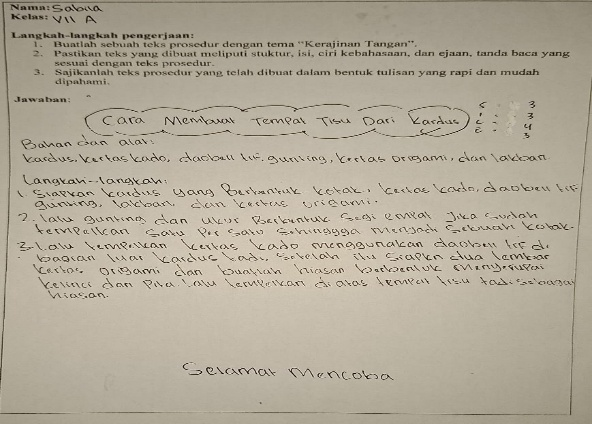 Nama: Sabila
Kelas: VII A
Langkah-langkah pengerjaan:
1. Buatlah sebuah teks prosedur dengan tema "Kerajinan Tangan".
2. Pastikan teks yang dibuat meliputi stuktur, isi, ciri kebahasaan, dan ejaan, tanda baca yang
sesuai dengan teks prosedur.
3. Sajikanlah teks prosedur yang telah dibuat dalam bentuk tulisan yang rapi dan mudah
dipahami.
Jawaban:
Cara Membuat Tempat Tisu Dari Kardus
S : 3
I : 3
C : 4
E : 3
Bahan dan alat:
kardus, kertas kado, daobell tif, gunting, kertas origami, dan lakban
Langkah-langkah:
1. Siapkan kardus yang Berbentuk kotak, kertas kado, daobell tif
gunting, lakban, dan kertas origami.
2. lalu gunting dan ukur Berbentuk segi empat Jika sudah
tempelkan satu Per satu sehingga menjadi sebuah kotak.
3. Lalu tempelkan kertas kado menggunakan daobell tif di
bagian luar kardus tadi, setelah itu siapkn dua lembar
kertas origami dan buatlah hiasan berbentuk menyerupai
kelinci dan Pita. Lalu tempelkan di atas tempat tisu tadi sebagai
hiasan.
Selamat Mencoba